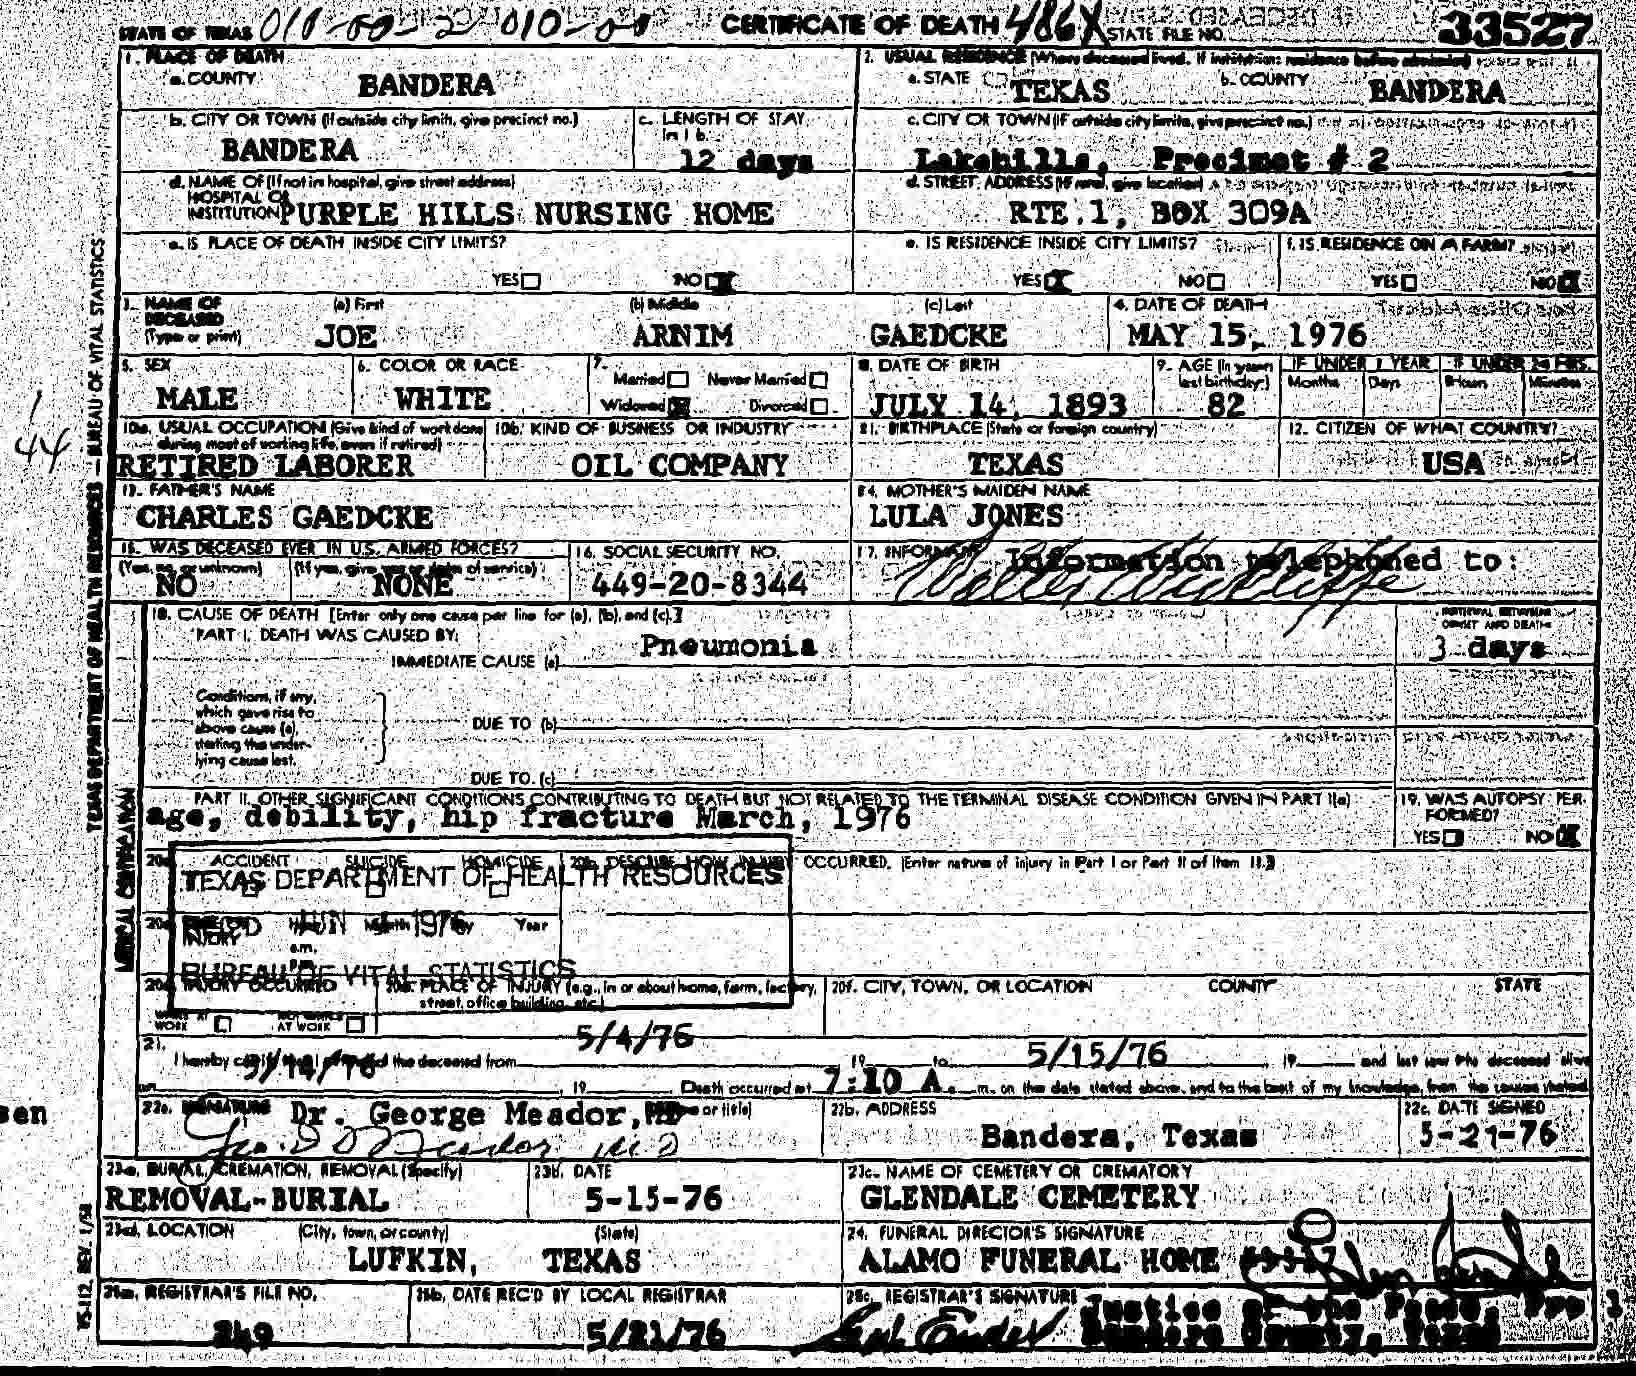 STATE OF TEXAS
CERTIFICATE OF DEATH
486X
STATE FILE NO. 33527
1. PLACE OF DEATH
a. COUNTY BANDERA
2. USUAL RESIDENCE (Where deceased lived. If institution: residence before admission)
a. STATE TEXAS b. COUNTY BANDERA
b. CITY OR TOWN (If outside city limits, give precinct no.) BANDERA
c. LENGTH OF STAY in 1 b. 12 days
c. CITY OR TOWN (If outside city limits, give precinct no.) Lakehills, Precinct # 2
d. NAME OF (If not in hospital, give street address)
HOSPITAL OR
INSTITUTION PURPLE HILLS NURSING HOME
d. STREET ADDRESS (If rural, give location) RTE.1, BOX 309A
e. IS PLACE OF DEATH INSIDE CITY LIMITS?
YES NO
e. IS RESIDENCE INSIDE CITY LIMITS?
YES NO
f. IS RESIDENCE ON A FARM?
YES NO
3. NAME OF DECEASED (Type or print)
(a) First JOE (b) Middle ARNIM (c) Last GAEDCKE
4. DATE OF DEATH MAY 15, 1976
5. SEX MALE
6. COLOR OR RACE WHITE
7. Married Never Married
Widowed Divorced
8. DATE OF BIRTH JULY 14, 1893
9. AGE (In years last birthday) 82
IF UNDER 1 YEAR Months Days
IF UNDER 24 HRS. Hours Minutes
10a. USUAL OCCUPATION (Give kind of work done during most of working life, even if retired) RETIRED LABORER
10b. KIND OF BUSINESS OR INDUSTRY OIL COMPANY
11. BIRTHPLACE (State or foreign country) TEXAS
12. CITIZEN OF WHAT COUNTRY? USA
13. FATHER'S NAME CHARLES GAEDCKE
14. MOTHER'S MAIDEN NAME LULA JONES
15. WAS DECEASED EVER IN U.S. ARMED FORCES?
(Yes, no, or unknown) NO (If yes, give war or dates of service) NONE
16. SOCIAL SECURITY NO. 449-20-8344
17. INFORMANT Information telephoned to:
18. CAUSE OF DEATH [Enter only one cause per line for (a), (b), and (c).]
PART I. DEATH WAS CAUSED BY:
IMMEDIATE CAUSE (a) Pneumonia
INTERVAL BETWEEN ONSET AND DEATH 3 days
Conditions, if any, which gave rise to above cause (a), stating the underlying cause last.
DUE TO (b)
DUE TO (c)
PART II. OTHER SIGNIFICANT CONDITIONS CONTRIBUTING TO DEATH BUT NOT RELATED TO THE TERMINAL DISEASE CONDITION GIVEN IN PART I(a)
age, debility, hip fracture March, 1976
19. WAS AUTOPSY PERFORMED?
YES NO
20a. ACCIDENT SUICIDE HOMICIDE
20b. DESCRIBE HOW INJURY OCCURRED. (Enter nature of injury in Part I or Part II of Item 18.)
TEXAS DEPARTMENT OF HEALTH RESOURCES
REC'D JUN 1976
BUREAU OF VITAL STATISTICS
INJURY Year
a.m.
20d. INJURY OCCURRED
WHILE AT WORK NOT WHILE AT WORK
20e. PLACE OF INJURY (e.g., in or about home, farm, factory, street, office building, etc.)
20f. CITY, TOWN, OR LOCATION COUNTY STATE
21. I hereby certify that I attended the deceased from 5/4/76 19 to 5/15/76, 19 and last saw the deceased alive
on 5/14/76, 19 Death occurred at 7:10 A. m. on the date stated above, and to the best of my knowledge, from the causes stated.
22a. SIGNATURE Dr. George Meador, MD (Degree or title)
22b. ADDRESS Bandera, Texas
22c. DATE SIGNED 5-21-76
23a. BURIAL, CREMATION, REMOVAL (Specify) REMOVAL-BURIAL
23b. DATE 5-15-76
23c. NAME OF CEMETERY OR CREMATORY GLENDALE CEMETERY
23d. LOCATION (City, town, or county) LUFKIN, (State) TEXAS
24. FUNERAL DIRECTOR'S SIGNATURE ALAMO FUNERAL HOME
25a. REGISTRAR'S FILE NO. 249
25b. DATE REC'D BY LOCAL REGISTRAR 5/21/76
25c. REGISTRAR'S SIGNATURE
Justice of the Peace, Pre 1
Bandera County, Texas
TEXAS DEPARTMENT OF HEALTH RESOURCES — BUREAU OF VITAL STATISTICS
MEDICAL CERTIFICATION
VS-112, REV. 1/58
1
44
sen